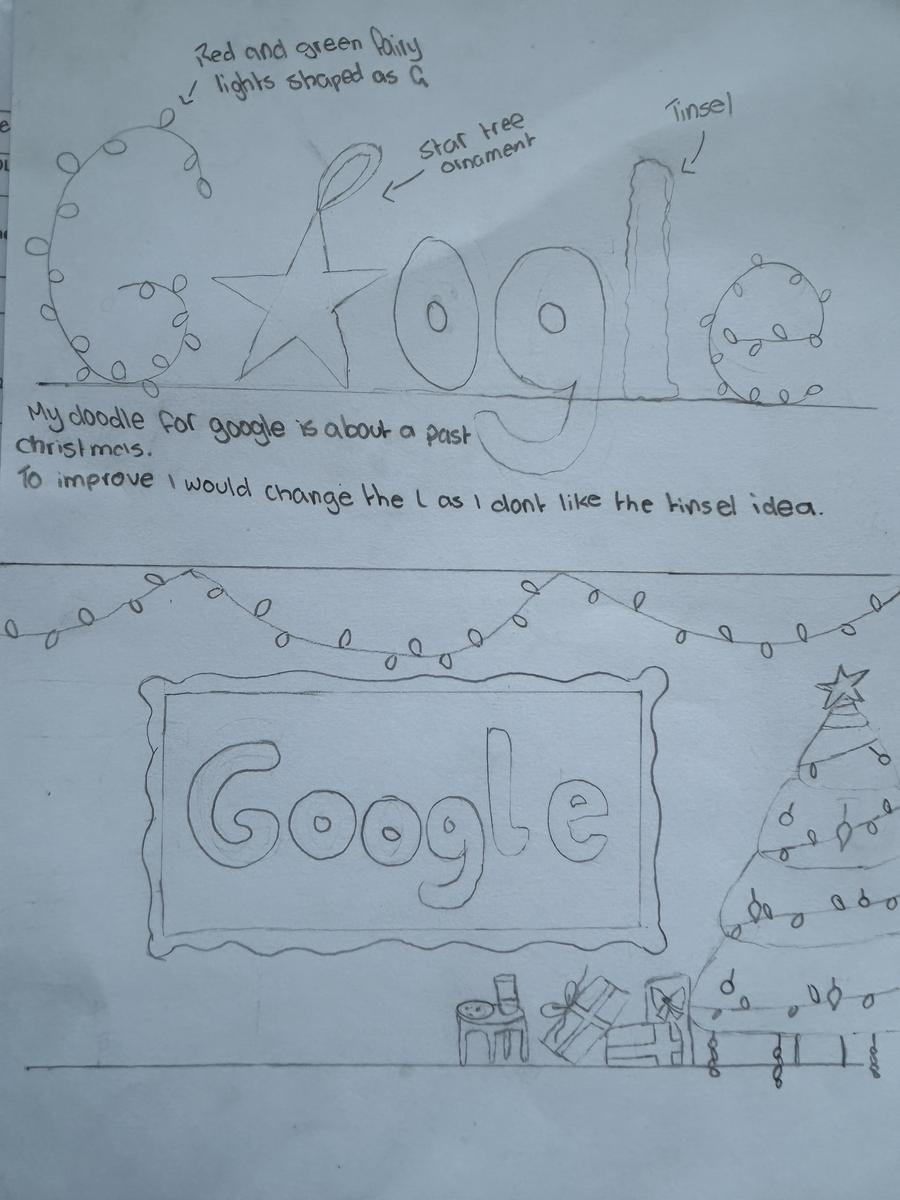 Red and green fairy
lights shaped as G
Star tree
ornament
Tinsel
G ogle
My doodle for google is about a past
christmas.
To improve I would change the L as I dont like the tinsel idea.
Google